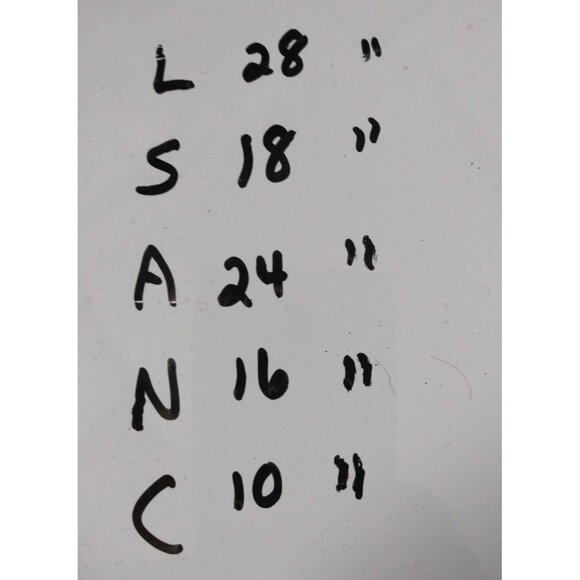 L 28 "
S 18 "
A 24 "
N 16 "
C 10 "